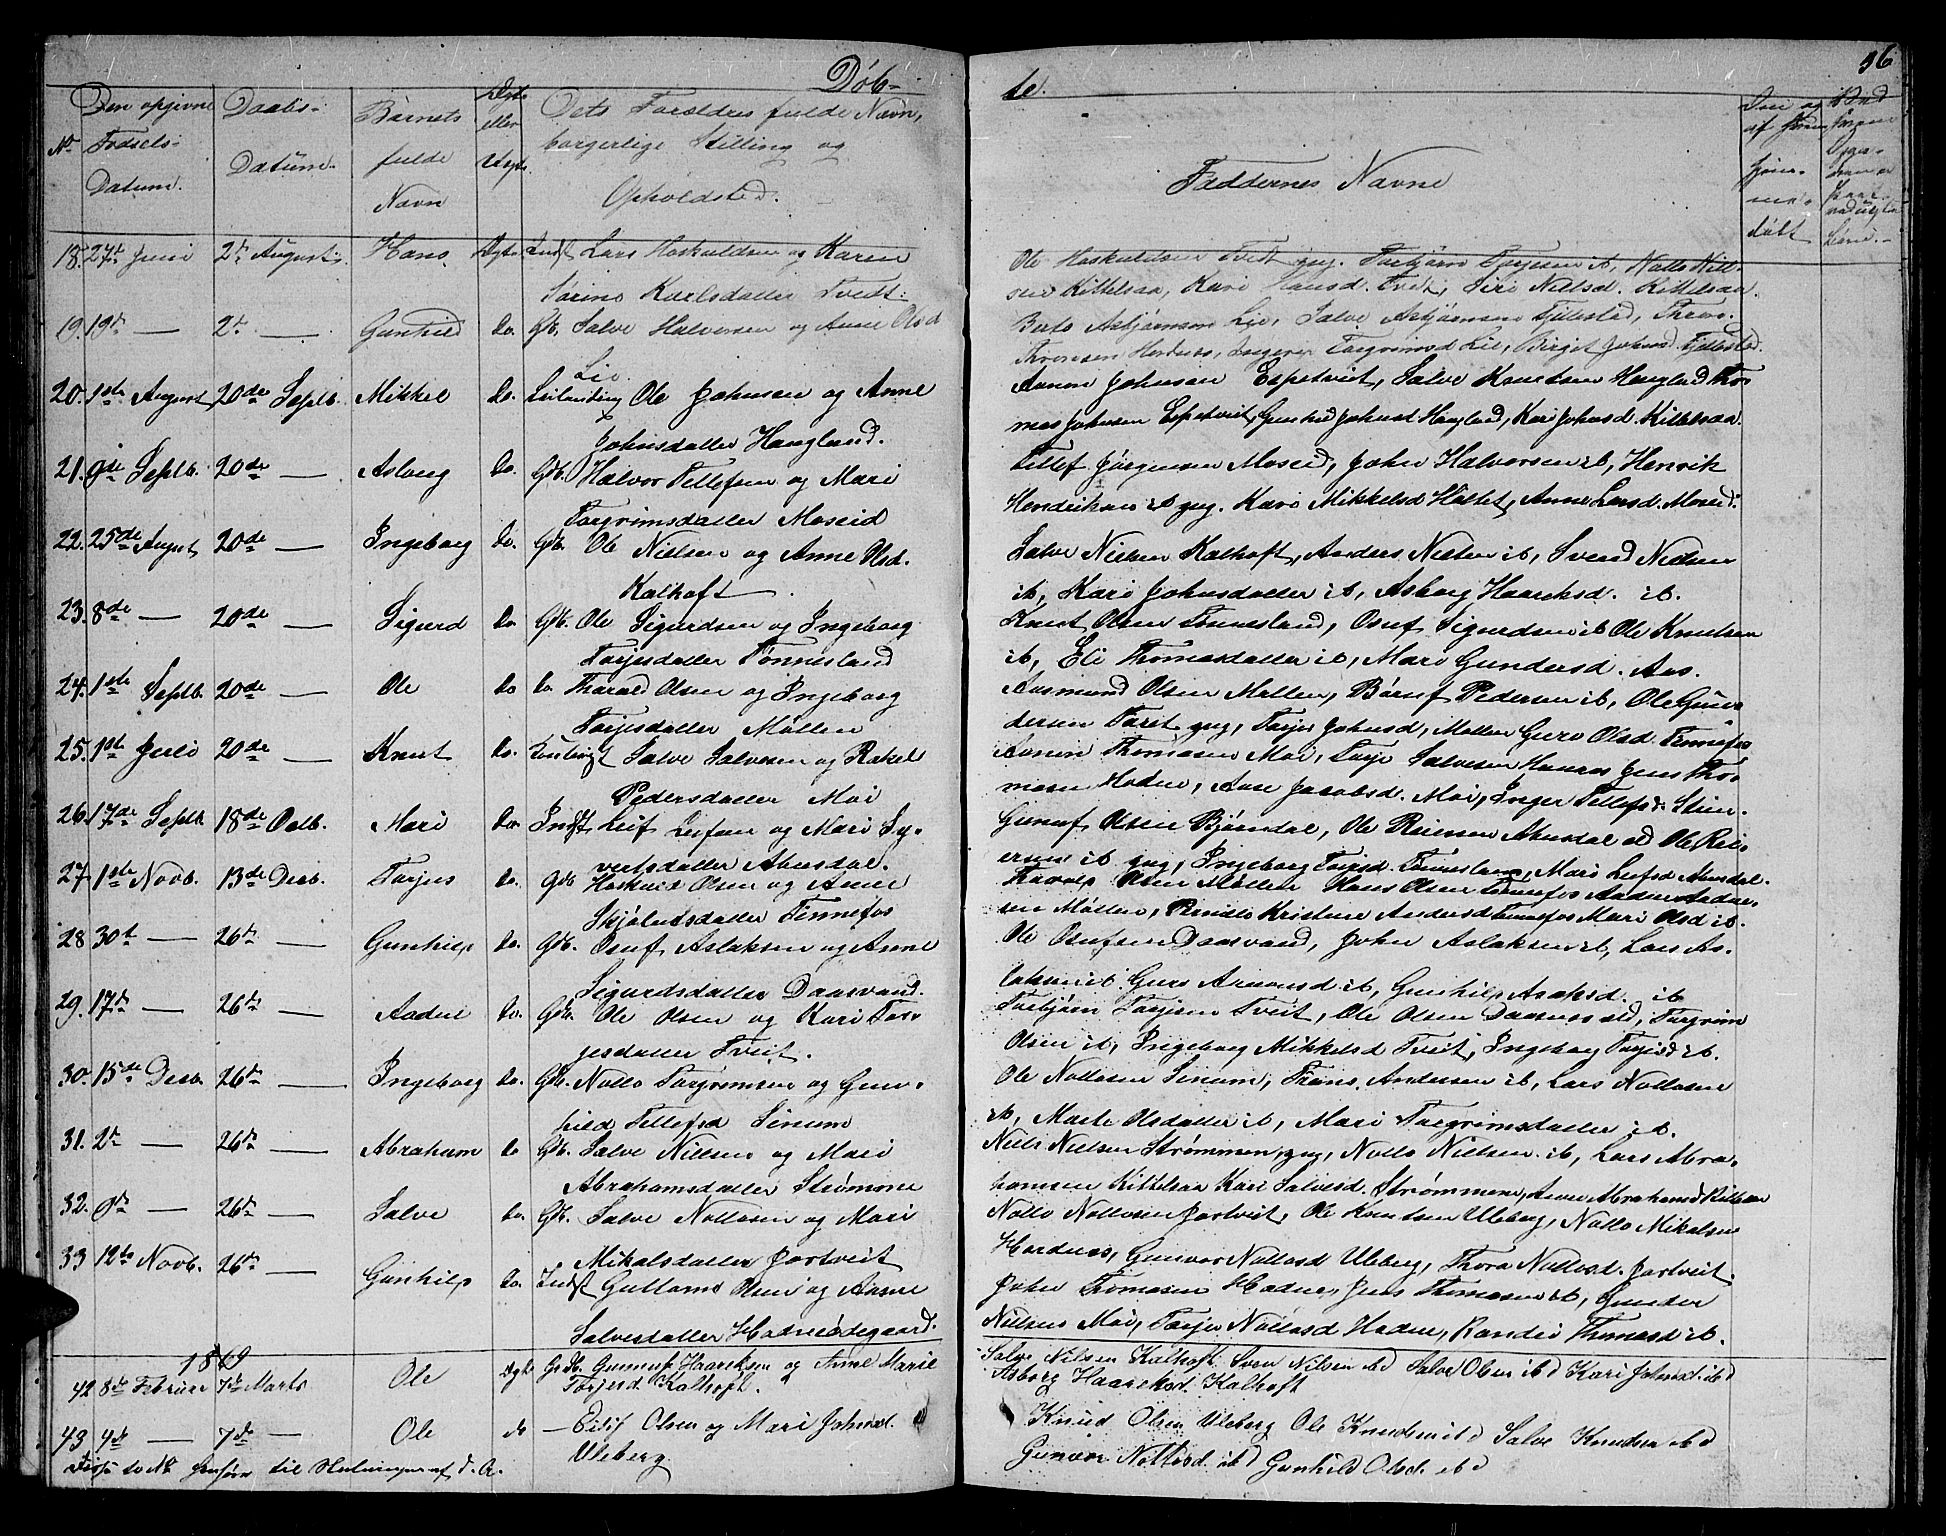 Døb-
te.
56
No
Den opgivne Fødsels-Datum.
Daabs-Datum.
Barnets fulde Navn
Ægte eller Uægte
Dets Forældres fulde Navn, borgerlige Stilling og Opholdsted.
Faddernes Navne
18. 27de Juni 2de August Hans Ægte Indst Lars Hoskuldsen og Karen
Sørine Karlsdatter Tveit.
Ole Hoskuldsen Tveit gug. Torbjørn Torjesen ib, Nollo Nill-
sen Kittelsaa, Kari Hansd. Tveit, Siri Nielsd. Kittelsaa.
19. 19de — 2de — Gunhild Do. Gb. Salve Halvorsen og Anne Olsd
Lie
Berto Asbjørnsen Lie, Salve Asbjørnsen Fjellestad, Thron
Thronsen Hordnes, Ingerer Torgrimsd Lie, Birgit Johnsd. Fjellestad.
20. 1ste August 20de Septb. Mikkel Do. Leilending Ole Johnsen og Anne
Johnsdatter Haugland.
Aanon Johnsen Espetveit, Salve Knutsen Haugland Tho-
mas Johnsen Espetveit, Gunhild Johnsd Haugland, Kari Johnsd. Kittelsaa.
21. 9de Septb. 20de — Aslaug Do. Gdb. Halvor Tellefsen og Mari
Torgrimsdatter Moseid
Tellef Jørgensen Moseid, John Halvorsen ib, Henrik
Hendriksen ib gug. Kari Mikkelsd Holtet, Anne Larsd. Moseid.
22. 25de August 20de — Ingeborg Do. Gb. Ole Nielsen og Anne Olsd.
Kalhoft.
Salve Nielsen Kalhoft, Anders Nielsen ib, Svend Nielsen
ib, Kari Johnsdatter ib, Asborg Haareksd. ib.
23. 8de — 20de — Sigurd Do. Gb. Ole Sigurdsen og Ingeborg
Torjesdatter Tønnesland
Knut Olsen Tønnesland, Osuf Sigurdsen ib Ole Knutsen
ib, Eli Thomasdatter ib, Mari Gundersd. Aas.
24. 1ste Septb. 20de — Ole Do Do. Tharald Olsen og Ingeborg
Torjesdatter Møllen
Aasmund Olsen Møllen, Børuf Pedersen ib, Ole Gun-
dersen Tveit gug, Torjer Johnsd, Møllen Guro Olsd. Tinnefos
25. 1ste Juli 20de — Knut Do. Salve Salvesen og Rakel
Pedersdatter Moi
Aanon Thomasen Moi, Torje Salvesen Haanes Jens Tho-
masen Hodne, Aase Jacobsd. Moi, Inger Tellefsd. Stien.
26. 17de Septb 18de Octb. Mari Do. Indst Leif Leifsen og Mari Sy-
vertsdatter Abusdal.
Gunuf Olsen Bjørndal, Ole Reiersen Abusdal Ole Rei-
ersen ib gug, Ingeborg Torjesd. Tønnesland, Mari Leifsd Abusdal.
27. 1ste Novb. 13de Decb. Torjus Do. Gdb Hoskuld Olsen og Anne
Skjøludsdatter Tinnefos
Tharald Olsen Møllen Hans Olsen Tinnefos Aaden Aaden-
sen Møllen, Pernille Kristine Andersd Tinnefos Mari Olsd ib.
28 30te — 26de — Gunhild Do. Gdb. Osuf Aslaksen og Anne
Sigurdsdatter Daasvand.
Ole Osufsen Daasvand, John Aslaksen ib, Lars As-
laksen ib Guro Arnemsd. ib, Gunhild Aslaksd. ib
29. 17de — 26de — Aadne Do. Gb. Ole Olsen og Kari Tor-
jesdatter Tveit.
Torbjørn Torjesen Tveit, Ole Olsen Daasvand, Torgrim
Olsen ib, Ingeborg Mikkelsd Tveit, Ingeborg Torjesd ib.
30. 15de Decb. 26de — Ingeborg Do. Gb. Nollo Torgrimsen og Gun-
hild Tellefsd Senum
Ole Nollosen Senum, Frans Andersen ib, Lars Nollosen
ib, Marte Olsdatter ib, Mari Torgrimsdatter ib.
31. 2de — 26de — Abraham Do Gb. Salve Nielsen og Mari
Abrahamsdatter Strømme
Niels Nielsen Strømmen, gug, Nollo Nielsen ib, Lars Abra-
hamsen Kittelsaa Kari Salvesd. Strømmen, Anne Abrahamsd Kittelsaa
32. 26de — Salve Do. Gb. Salve Nollosen og Mari
Mikalsdatter Jortveit
Nollo Nollosen Jortveit, Ole Knutsen Uleberg, Nollo Mikalsen
Hordnes, Gunvor Nollosd Uleberg, Thora Nollosd. Jortveit.
33 12te Novb. 26de — Gunhild Do. Indst Guttorm Olsen og Anne
Salvesdatter Hodneødegaard.
John Thomasen Hodne, Jens Thomasen ib, Gunder
Nielsen Moi, Torjer Nollosd Hodne, Randi Thomasd ib.
1869
42 8de Februar 7de Marts Ole Ægte Grdb. Gunnuf Haareksen og Anne Marie
Torjesd Kalhoft.
Salve Nilsen Kalhoft Sven Nilsen ibd Salve Olsen ibd Kari Johnsd. ibd
Asborg Haareksd. Kalhoft
43 4de — 7de — Ole do — Eilif Olsen og Mari Johnsd.
Uleberg
Knud Olsen Uleberg Ole Knudsen ibd Salve Knudsen ibd
Gunvor Nottosd. ibd Gunhild Olsd. ibd
Disse to Nr henføres til Slutningen af d. A.